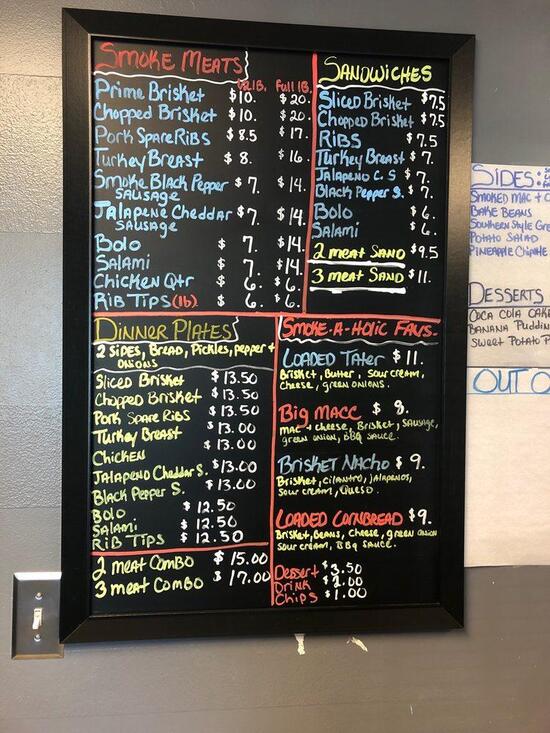 SMOKE MEATS
1/2 lB. Full lB.
Prime Brisket $10. $20.
Chopped Brisket $10. $20.
Pork Spare Ribs $8.5 $17.
Turkey Breast $8. $16.
Smoke Black Pepper $7. $14.
SAUSAGE
Jalapene Cheddar $7. $14.
SAUSAGE
Bolo $7. $14.
Salami $7. $14.
Chicken Qtr $6. $6.
Rib Tips (lb) $6. $6.
SANDWICHES
Sliced Brisket $7.5
Chopped Brisket $7.5
Ribs $7.5
Turkey Breast $7.
Jalapeno C. S $7.
Black Pepper S. $7.
Bolo $6.
Salami $6.
2 meat Sand $9.5
3 meat Sand $11.
DINNER PLATES
2 Sides, Bread, Pickles, pepper +
onions
Sliced Brisket $13.50
Chopped Brisket $13.50
Pork Spare Ribs $13.50
Turkey Breast $13.00
Chicken $13.00
Jalapeno Cheddar S. $13.00
Black Pepper S. $13.00
Bolo $12.50
Salami $12.50
Rib Tips $12.50
2 meat Combo $15.00
3 meat Combo $17.00
SMOKE-A-Holic FAVS-
LOADED Tater $11.
Brisket, Butter, Sour cream,
Cheese, green onions.
Big MACC $8.
mac + cheese, Brisket, Sausage,
green onion, BBQ Sauce.
Brisket Nacho $9.
Brisket, Cilantro, Jalapenos,
Sour cream, Queso.
LOADED Cornbread $9.
Brisket, Beans, Cheese, green onion
Sour cream, BBQ Sauce.
Dessert $3.50
Drink $2.00
Chips $1.00
SIDES:
Smoked Mac + C
Bake Beans
Southern Style Gre
Potato Salad
Pineapple Chipotle
DESSERTS
Coca Cola Cake
Banana Puddin
Sweet Potato P
OUT O